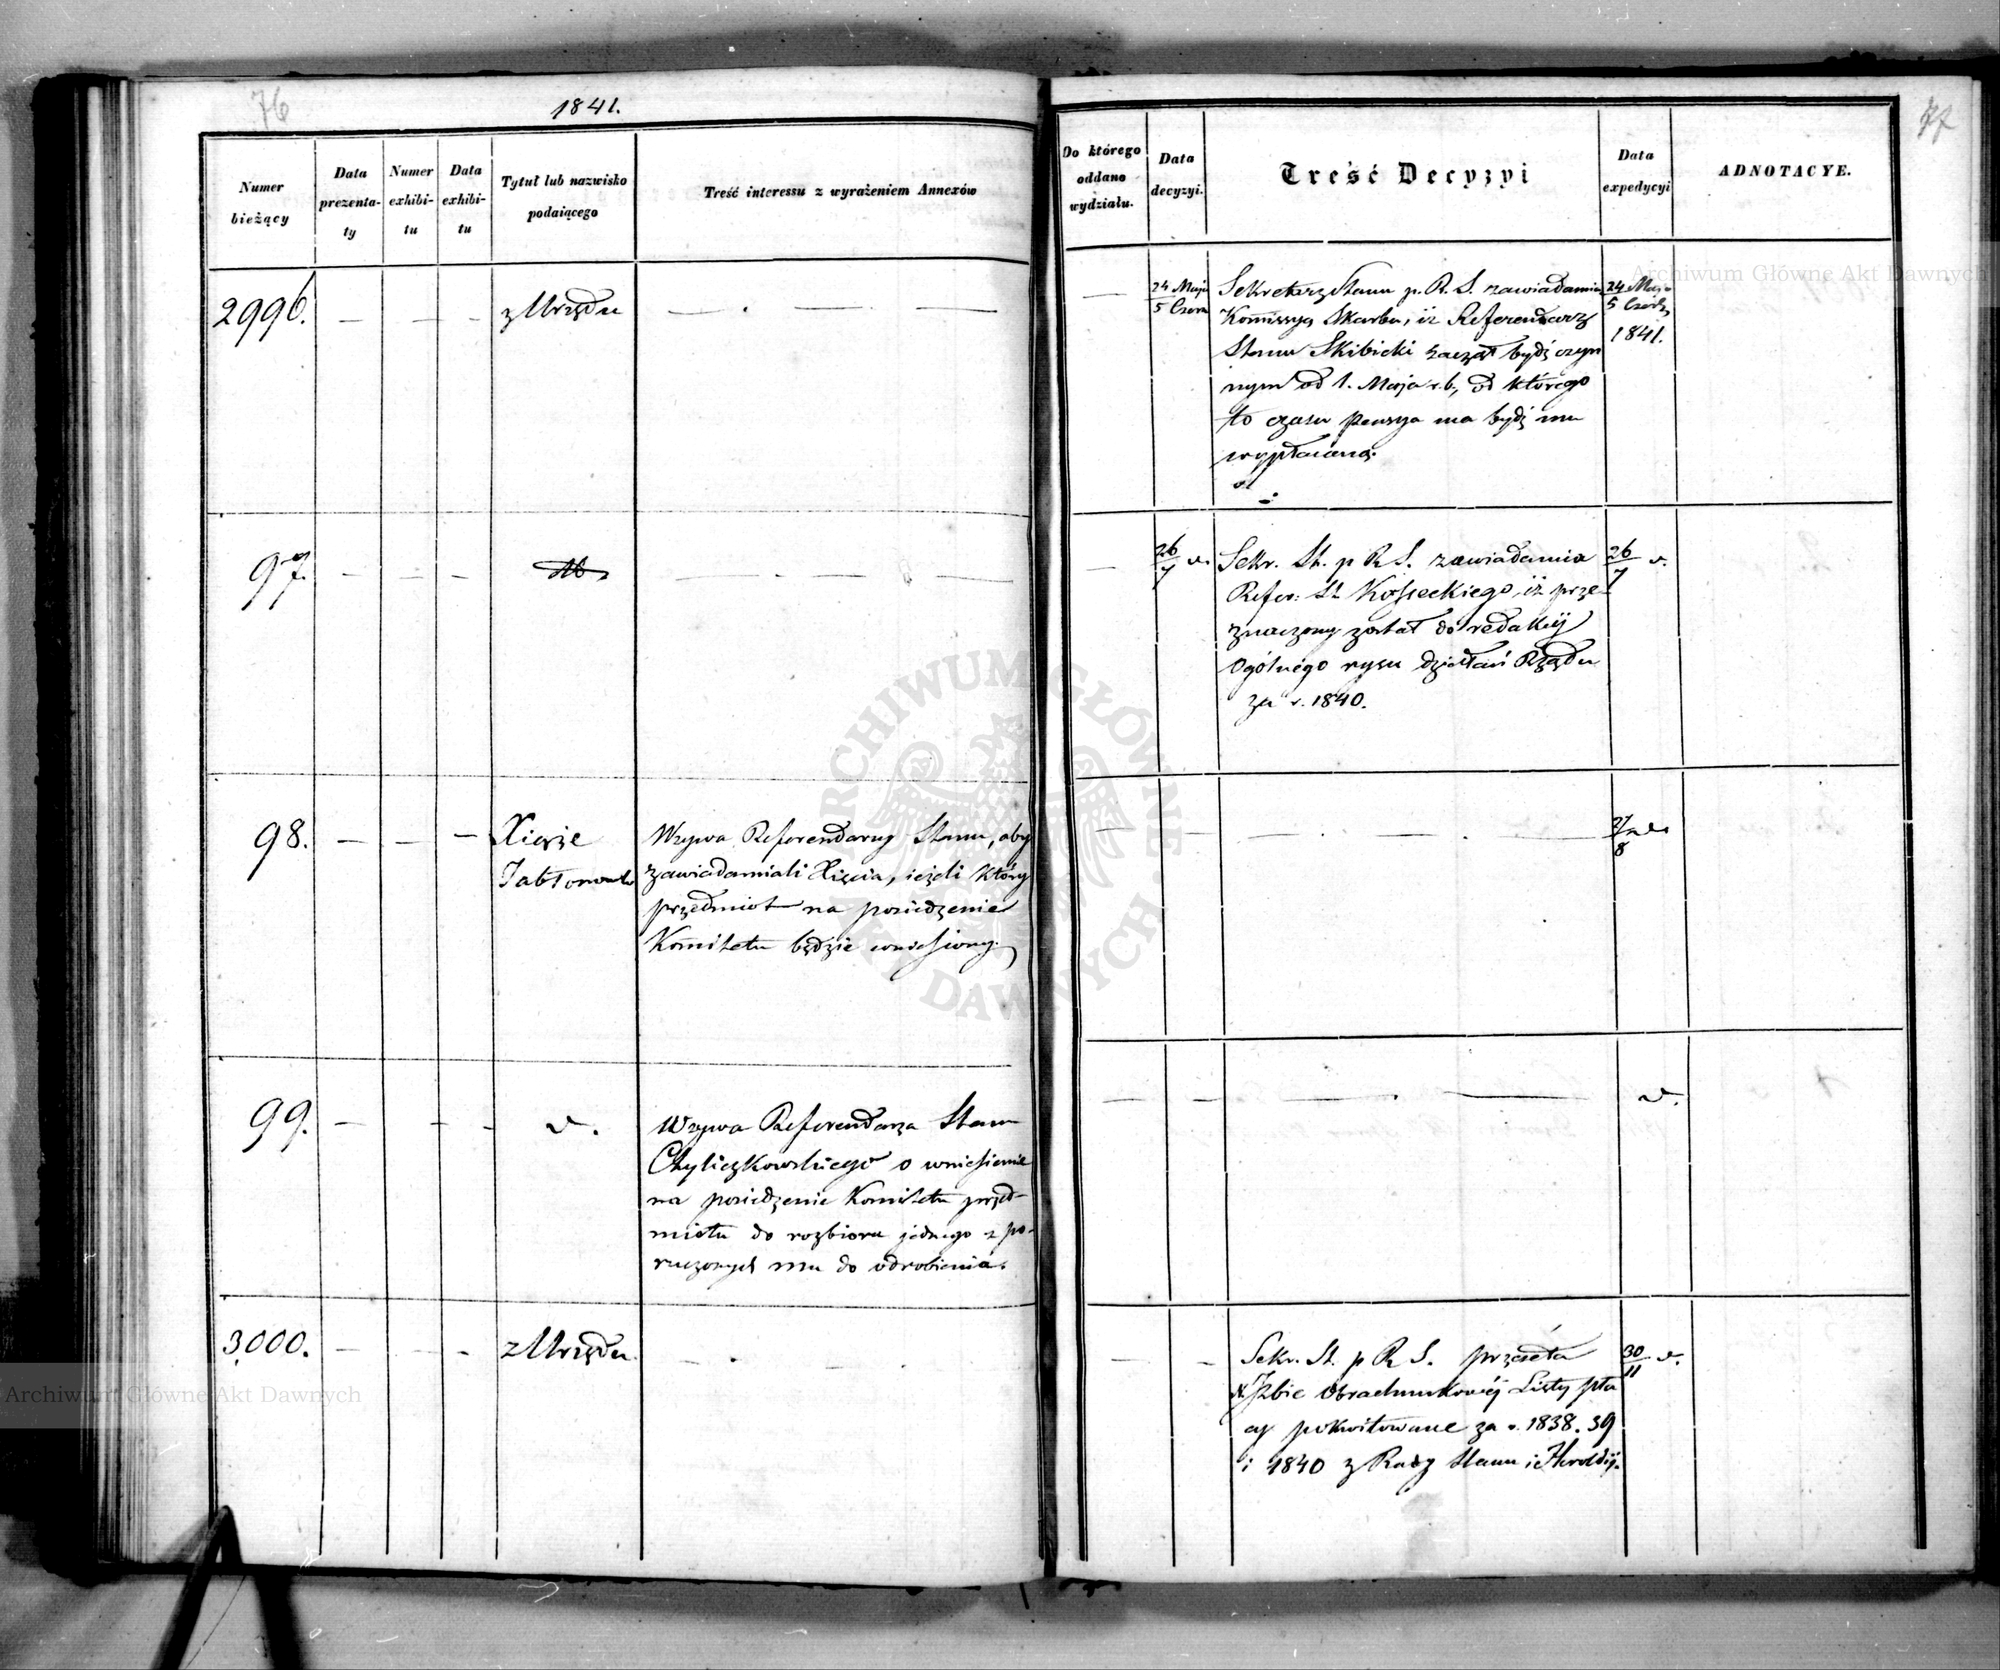 76
1841.
77
Numer bieżący
Data prezenta-ty
Numer exhibi-tu
Data exhibi-tu
Tytuł lub nazwisko podaiącego
Treść interessu z wyrażeniem Annexów
Do którego oddano wydziału.
Data decyzyi.
Treść Decyzyi
Data expedycyi
ADNOTACYE.
2996.
z Urzędu
24 Maja
5 Czerw
Sekretarz Stanu p. R. S. zawiadamia
Kommissyą Skarbu, iż Referendarz
Stanu Skibicki zaczął bydź czyn
nym od 1. Maja r. b., od którego
to czasu pensya ma bydź mu
wypłacaną.
24 Maja
5
1841.
97.
26
7
v.
Sekr. St. p R S. zawiadamia
Refer: St. Kosseckiego, iż prze-
znaczony został do redakcyi
Ogólnego rysu działań Rządu
za r. 1840.
26
7
v.
98.
Xiąże
Jabłonowski
Wzywa Referendarzy Stanu, aby
zawiadamiali Xięcia, ieżeli który
przedmiot na posiedzenie
Komitetu będzie wniesiony.
27
8
99.
v.
Wzywa Referendarza Stanu
Chyliczkowskiego o wniesienie
na posiedzenie Komitetu przed-
miotu do rozbioru jednego z po-
ruczonych mu do odrobienia.
v.
3000.
z Urzędu
Sekr. St. p R S. przesyła
N. Izbie Obrachunkowéj Listy pła
cy pokwitowane za r. 1838. 39
i 1840 z Rady Stanu i Heroldyi.
30
11
v.
Archiwum Główne Akt Dawnych
ARCHIWUM GŁÓWNE AKT DAWNYCH
Archiwum Główne Akt Dawnych